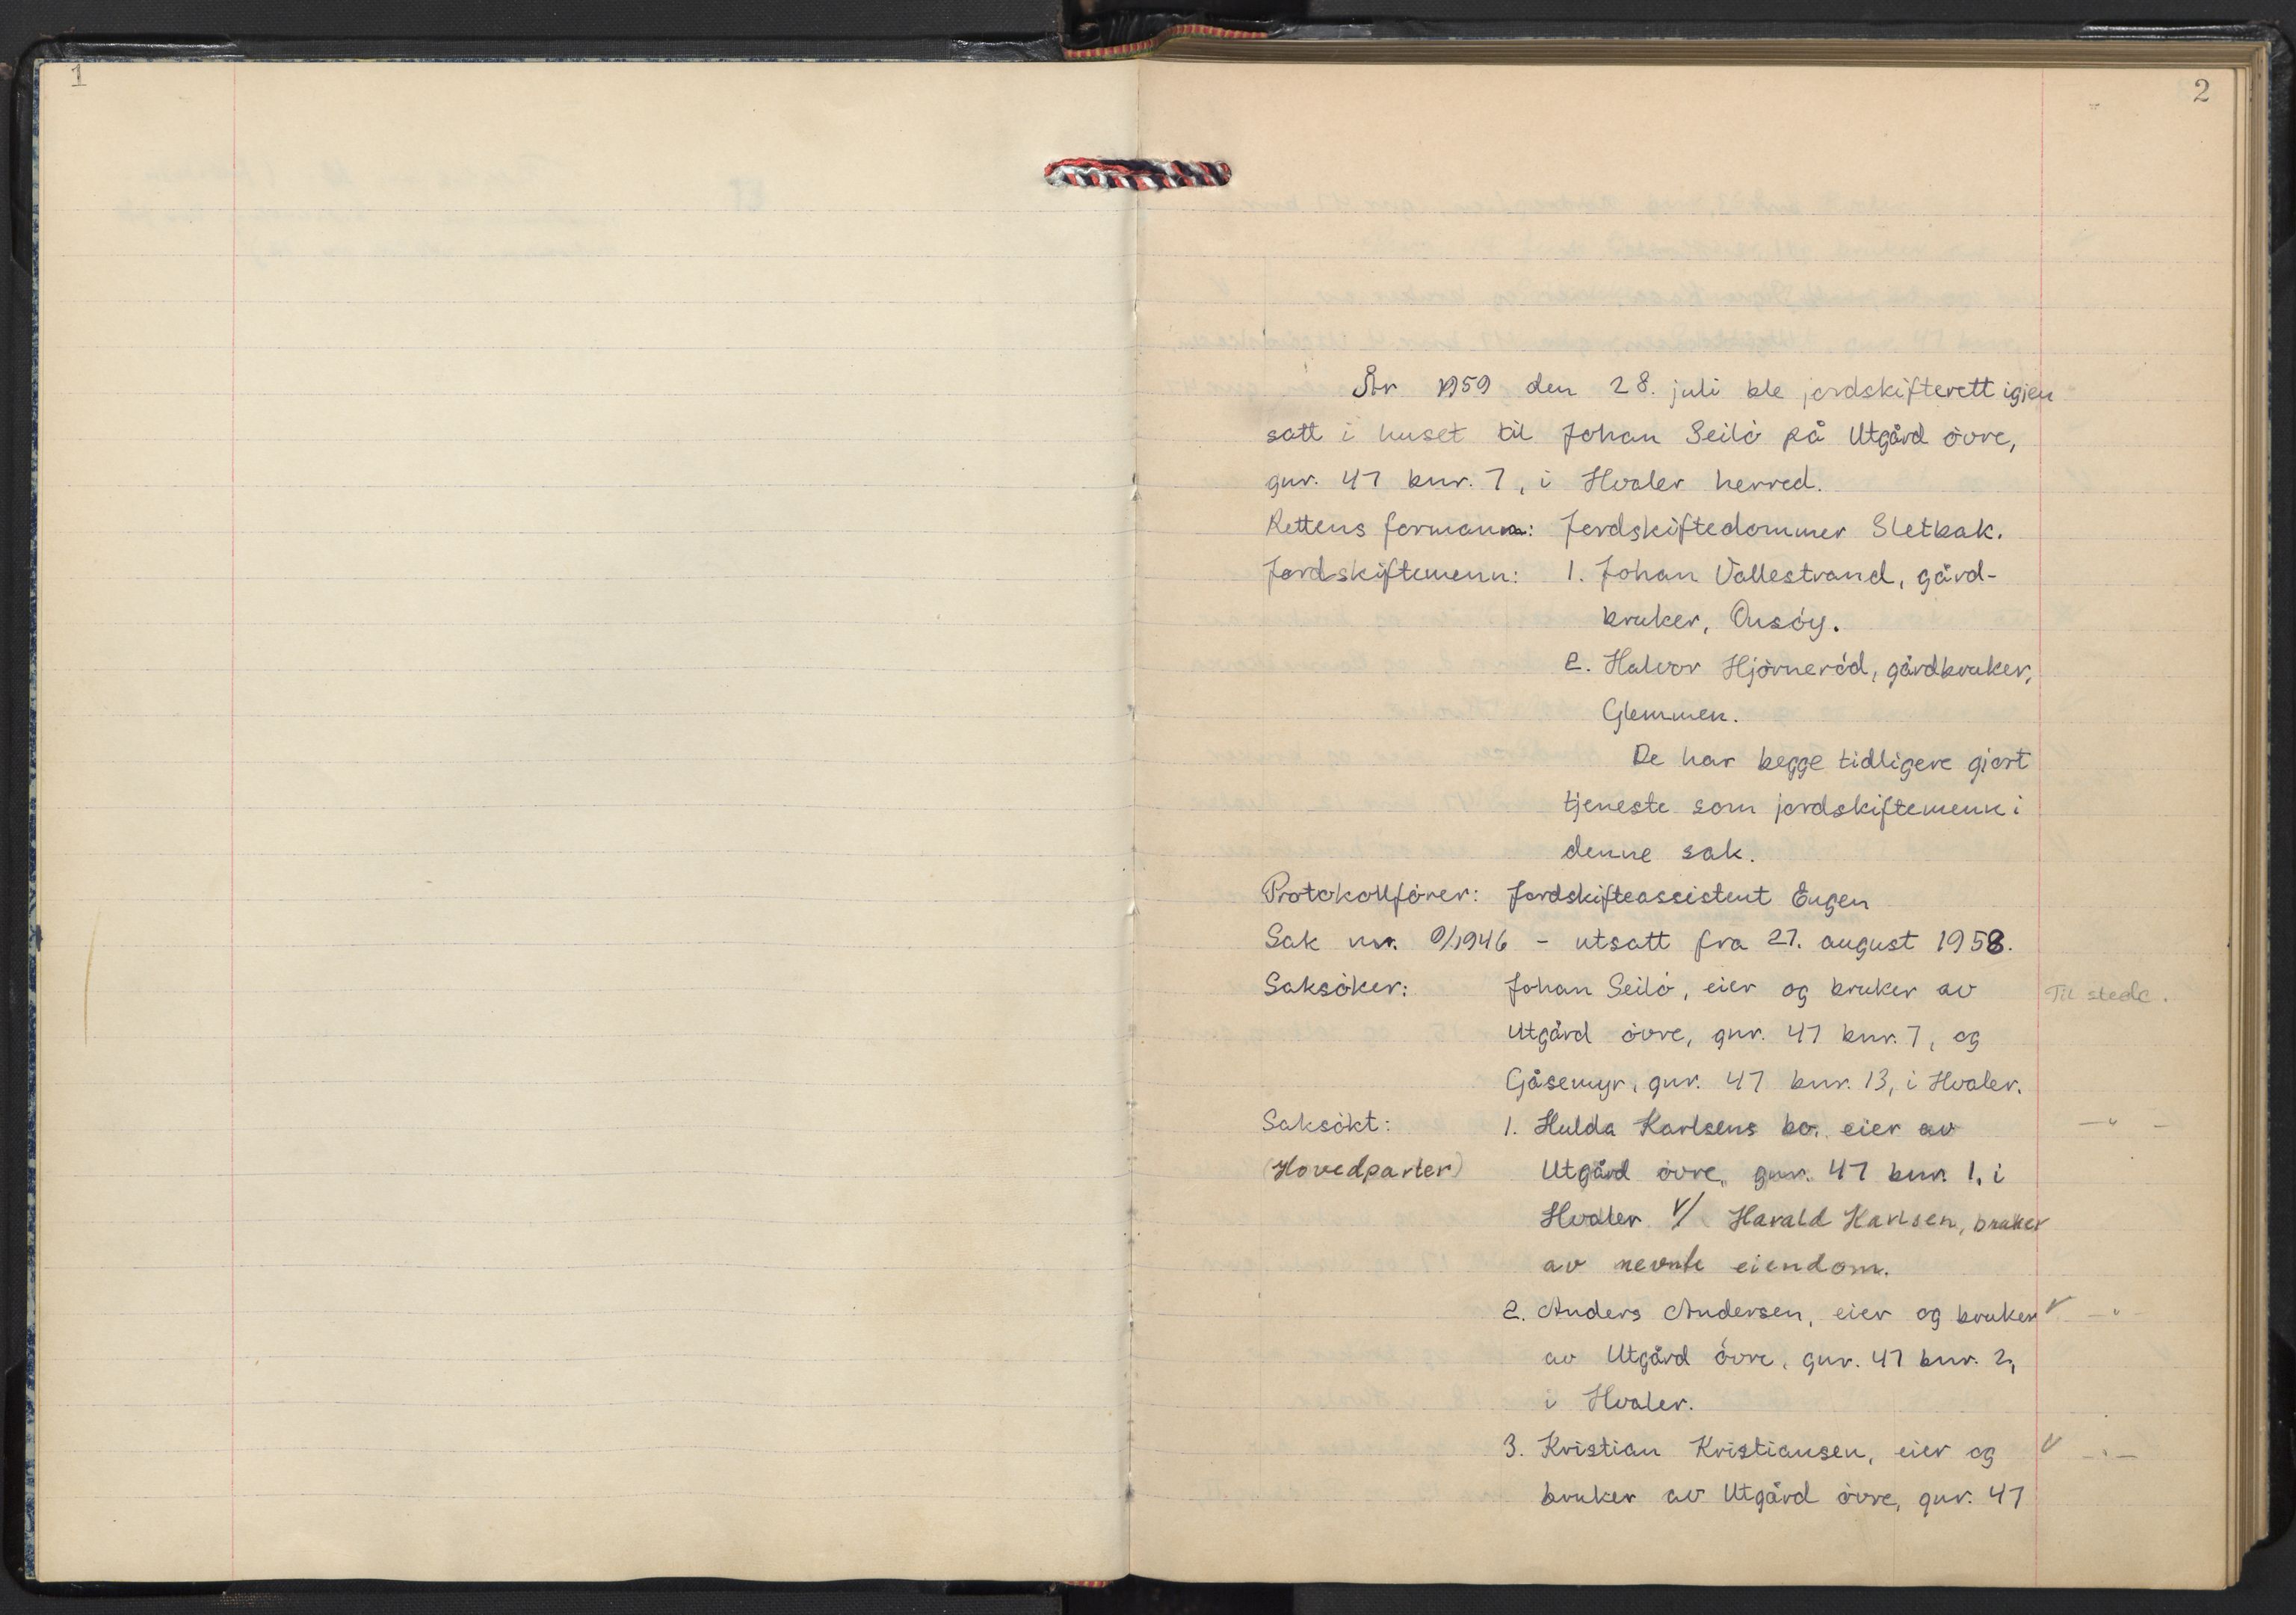 1
2
År 1959 den 28. juli ble jordskifterett igjen
satt i huset til Johan Seilö på Utgård övre,
gnr. 47 bnr. 7, i Hvaler herred.
Rettens formann: Jordskiftedommer Sletbak.
Jordskiftemenn: 1. Johan Vallestrand, gård-
bruker, Onsöy.
2. Halvor Hjörneröd, gårdbruker,
Glemmen.
De har begge tidligere gjort
tjeneste som jordskiftemenn i
denne sak.
Protokollförer: Jordskifteassistent Eugen
Sak nr. 9/1946 - utsatt fra 27. august 1958.
Saksöker: Johan Seilö, eier og bruker av Til stede.
Utgård övre, gnr. 47 bnr. 7, og
Gåsemyr, gnr. 47 bnr. 13, i Hvaler.
Saksökt: 1. Hulda Karlsens bo, eier av -"-
(Hovedparter) Utgård övre, gnr. 47 bnr. 1, i
Hvaler v/ Harald Karlsen, bruker
av nevnte eiendom.
2. Anders Andersen, eier og bruker v -"-
av Utgård övre, gnr. 47 bnr. 2,
i Hvaler.
3. Kristian Kristiansen, eier og v -"-
bruker av Utgård övre, gnr. 47